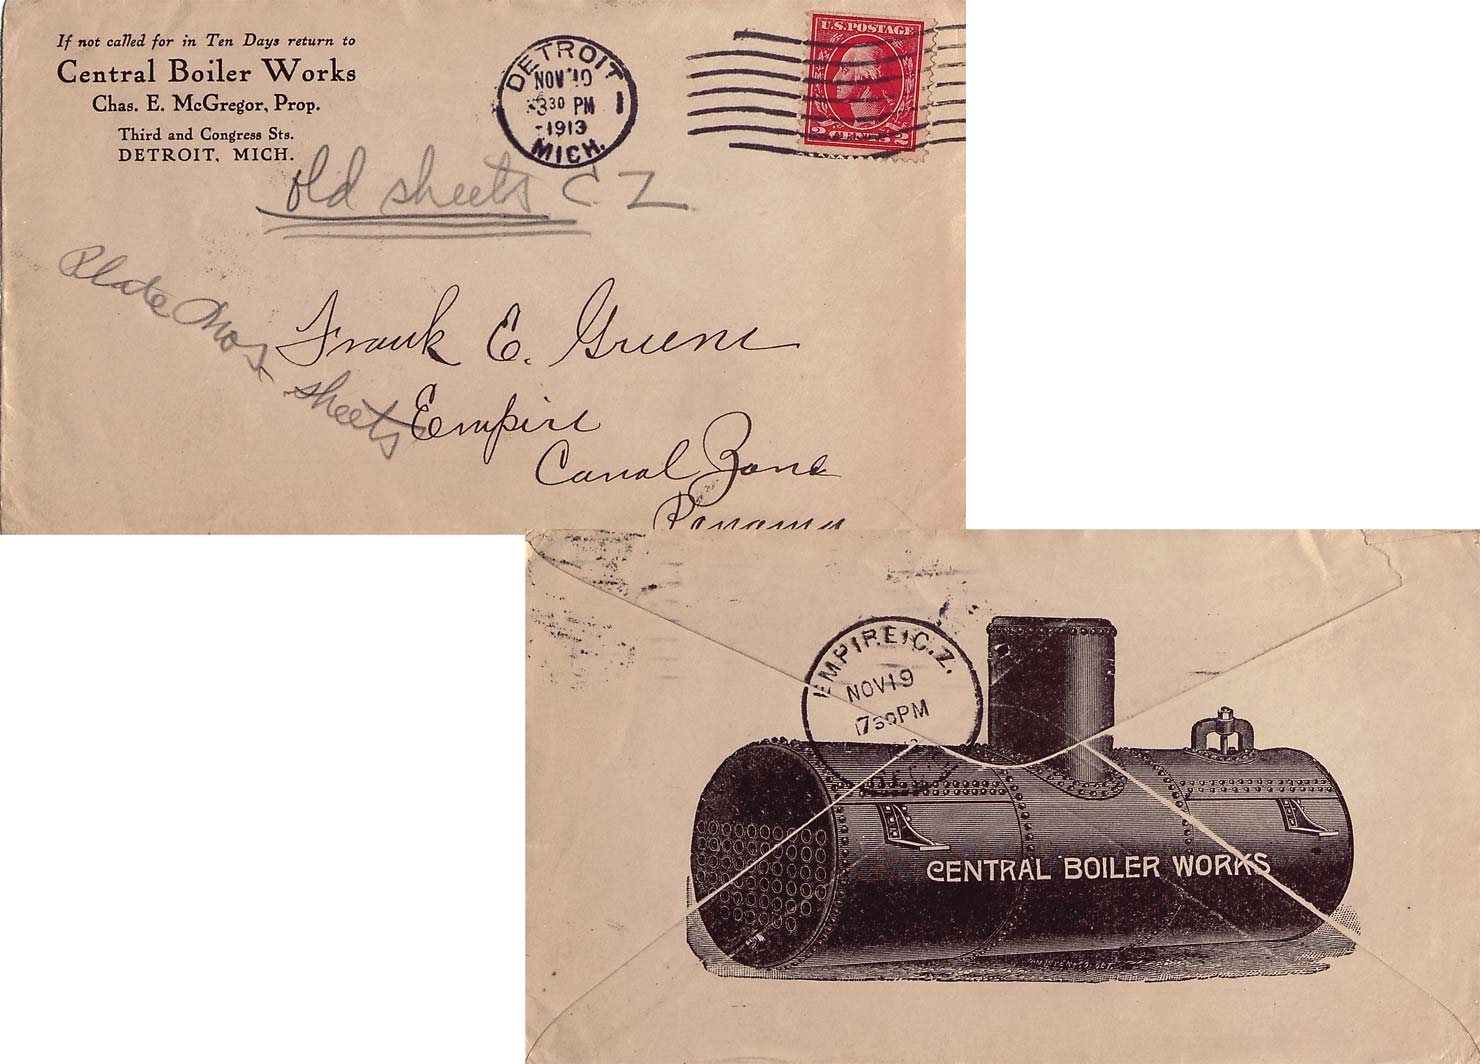 If not called for in Ten Days return to
Central Boiler Works
Chas. E. McGregor, Prop.
Third and Congress Sts.
DETROIT, MICH.
DETROIT
NOV 10
3 30 PM
1
1913
MICH.
U.S. POSTAGE
2 CENTS 2
old sheets C. Z
Plate Nos. sheets
Frank E. Greene
Empire
Canal Zone
Panama
EMPIRE, C.Z.
NOV 19
7 30 PM
REC'D
CENTRAL BOILER WORKS